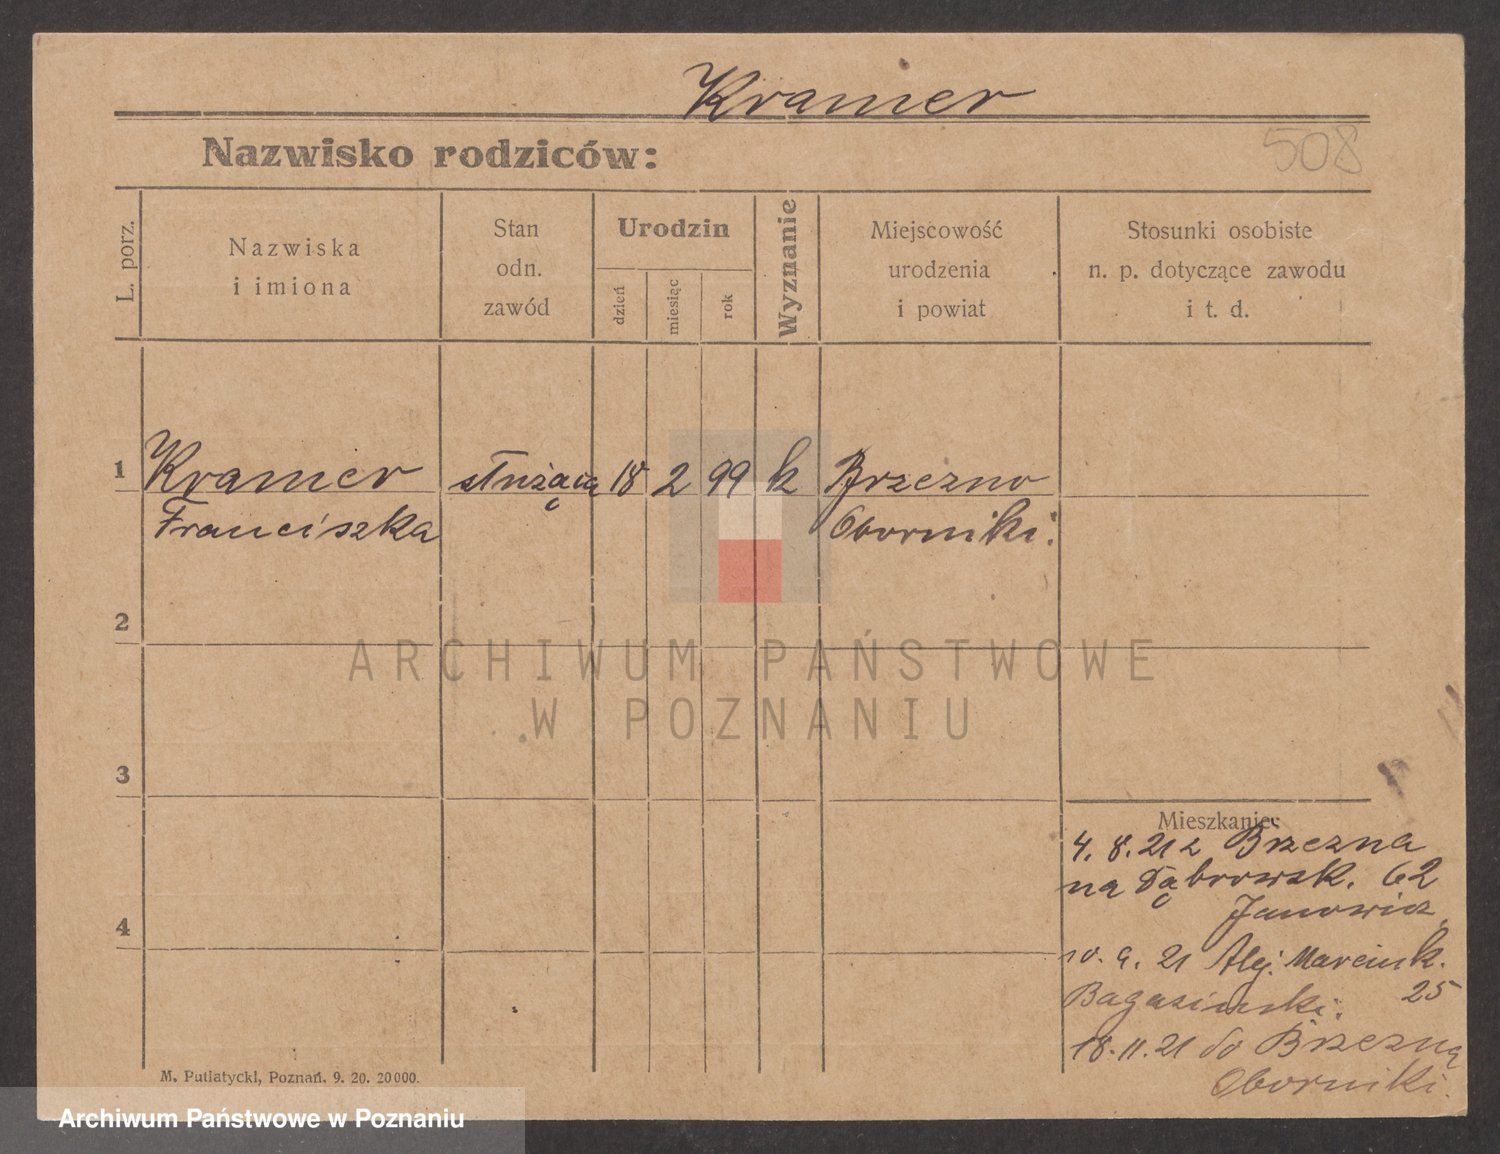 Kramer
Nazwisko rodziców:
508
L. porz.
Nazwiska
i imiona
Stan
odn.
zawód
Urodzin
dzień
miesiąc
rok
Wyznanie
Miejscowość
urodzenia
i powiat
Stosunki osobiste
n. p. dotyczące zawodu
i t. d.
1 Kramer służąca 18 2 99 k Brzezno
Franciszka Oborniki.
2
ARCHIWUM PAŃSTWOWE
W POZNANIU
3
Mieszkanie:
4. 8. 21 z Brzezna
na Dąbrowsk. 62
Janowicz
4
10. 9. 21 Alej. Marcink.
25
18.11.21 do Brzezna
Oborniki.
M. Putiatycki, Poznań. 9. 20. 20000.
Archiwum Państwowe w Poznaniu